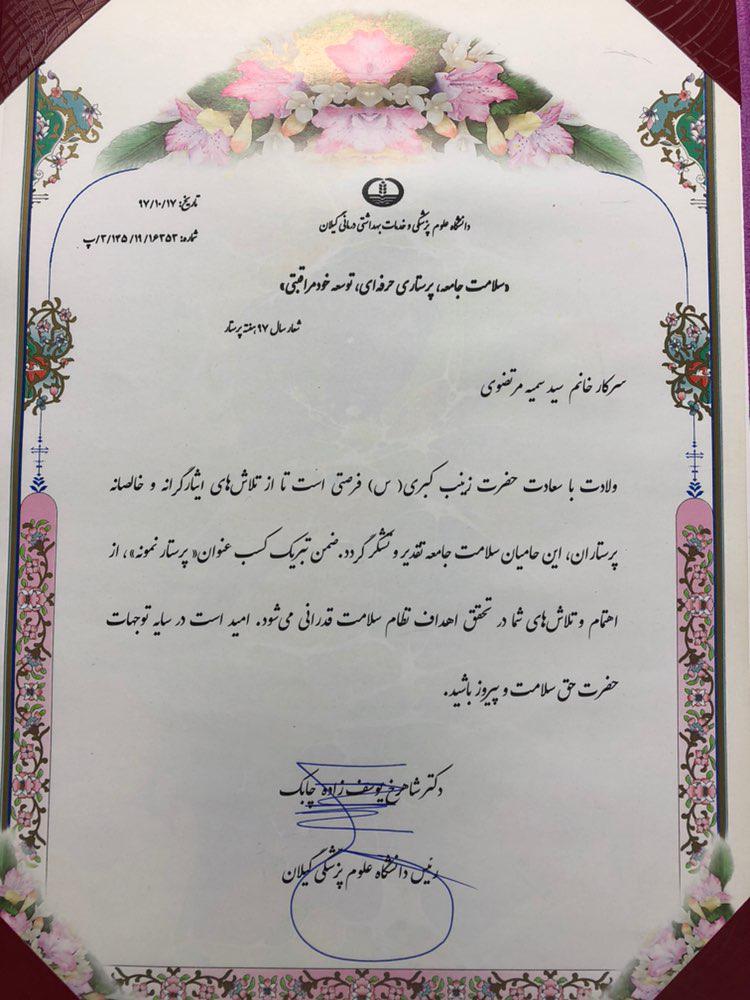 تاریخ: ۹۷/۱۰/۱۷
شماره: ۳/۱۴۵/۱۹/۱۶۳۵۳/پ
دانشگاه علوم پزشکی و خدمات بهداشتی درمانی گیلان
«سلامت جامعه، پرستاری حرفه ای، توسعه خودمراقبتی»
شعار سال ۹۷ هفته پرستار
سرکار خانم سید سمیه مرتضوی
ولادت با سعادت حضرت زینب کبری( س) فرصتی است تا از تلاش‌های ایثارگرانه و خالصانه
پرستاران، این حامیان سلامت جامعه تقدیر و تشکر گردد. ضمن تبریک کسب عنوان« پرستار نمونه»، از
اهتمام و تلاش‌های شما در تحقق اهداف نظام سلامت قدرانی می‌شود. امید است در سایه توجهات
حضرت حق سلامت و پیروز باشید.
دکتر شاهرخ یوسف زاده چابک
رئیس دانشگاه علوم پزشکی گیلان